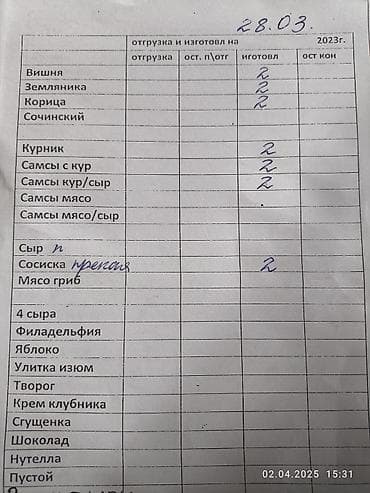 28.03.
отгрузка и изготовл на 2023г.
отгрузка ост. п\отг иготовл ост кон
Вишня 2
Земляника 2
Корица 2
Сочинский
Курник 2
Самсы с кур 2
Самсы кур/сыр 2
Самсы мясо
Самсы мясо/сыр
Сыр п
Сосиска 2
Мясо гриб
4 сыра
Филадельфия
Яблоко
Улитка изюм
Творог
Крем клубника
Сгущенка
Шоколад
Нутелла
Пустой
02.04.2025 15:31